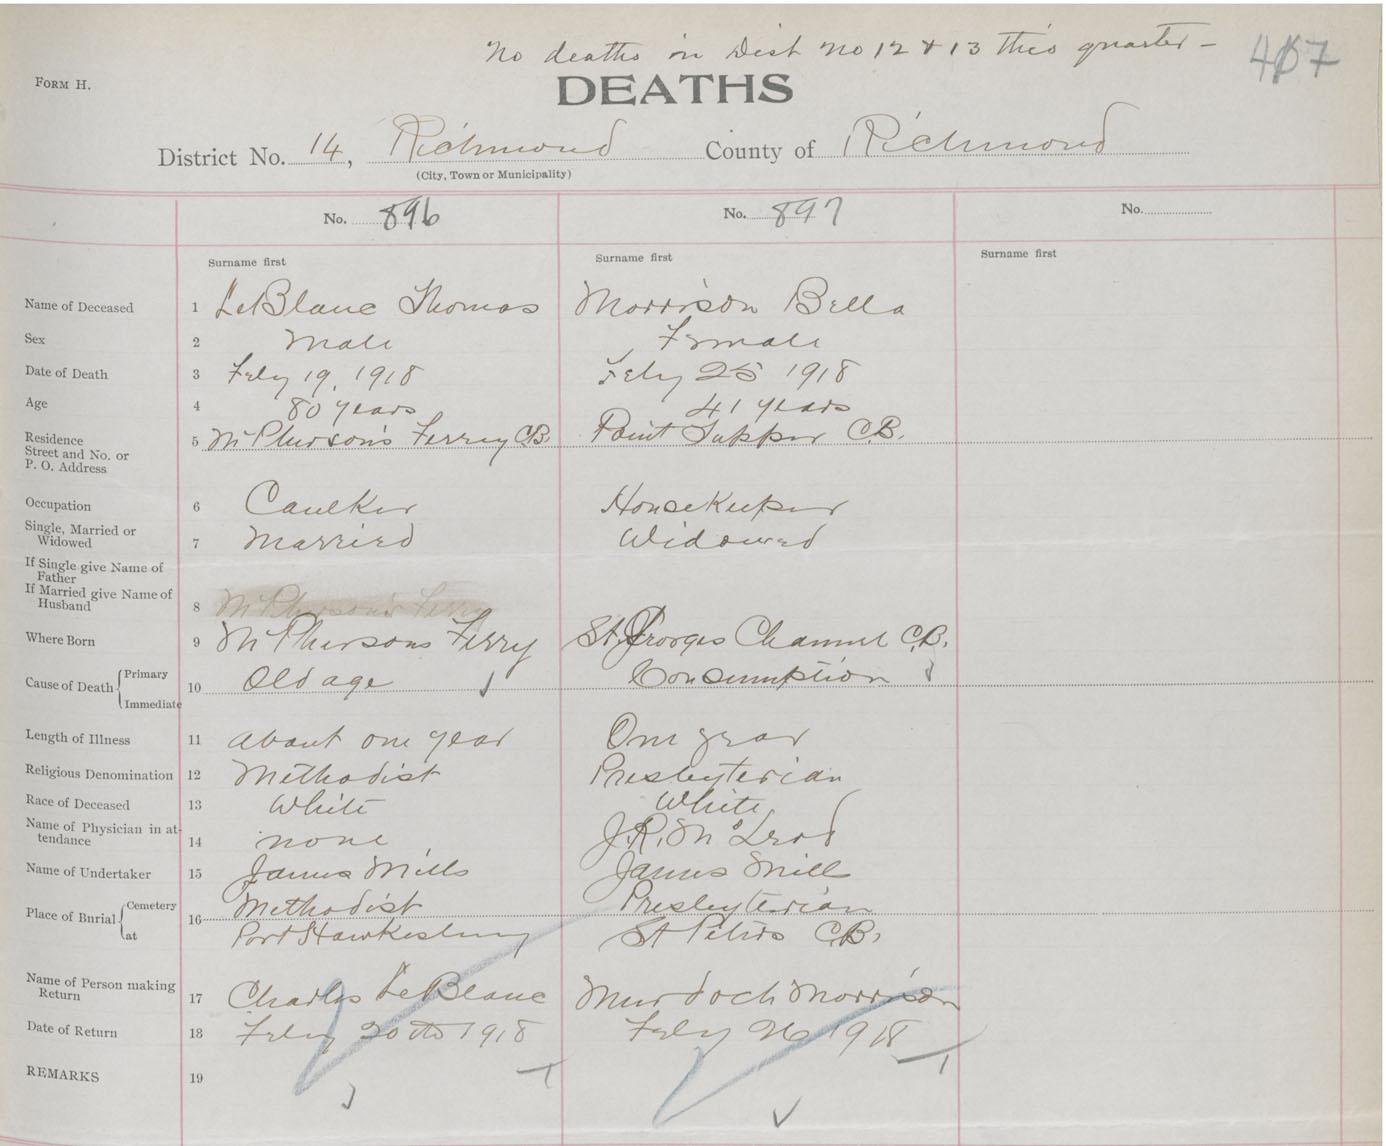 No deaths in Dist No 12 & 13 this quarter - 407
FORM H.
DEATHS
District No. 14, Richmond County of Richmond
(City, Town or Municipality)
No. 896 No. 897 No.
Surname first Surname first Surname first
Name of Deceased 1 LeBlanc Thomas Morrison Bella
Sex 2 Male Female
Date of Death 3 Feby 19, 1918 Feby 25 1918
Age 4 80 years 41 years
Residence Street and No. or P. O. Address 5 McPherson's Ferry C.B. Point Tupper C.B.
Occupation 6 Caulker Housekeeper
Single, Married or Widowed 7 Married Widowed
If Single give Name of Father
If Married give Name of Husband 8 McPherson's Ferry
Where Born 9 McPhersons Ferry St. Georges Channel C.B.
Cause of Death { Primary Immediate 10 Old age Consumption
Length of Illness 11 about one year One year
Religious Denomination 12 Methodist Presbyterian
Race of Deceased 13 White White
Name of Physician in attendance 14 none J.R. McLeod
Name of Undertaker 15 James Mills James Mill
Place of Burial { Cemetery 16 Methodist Presbyterian
at Port Hawkesbury St Peters C.B.
Name of Person making Return 17 Charles LeBlanc Murdoch Morrison
Date of Return 18 Feby 20th 1918 Feby 26 1918
REMARKS 19